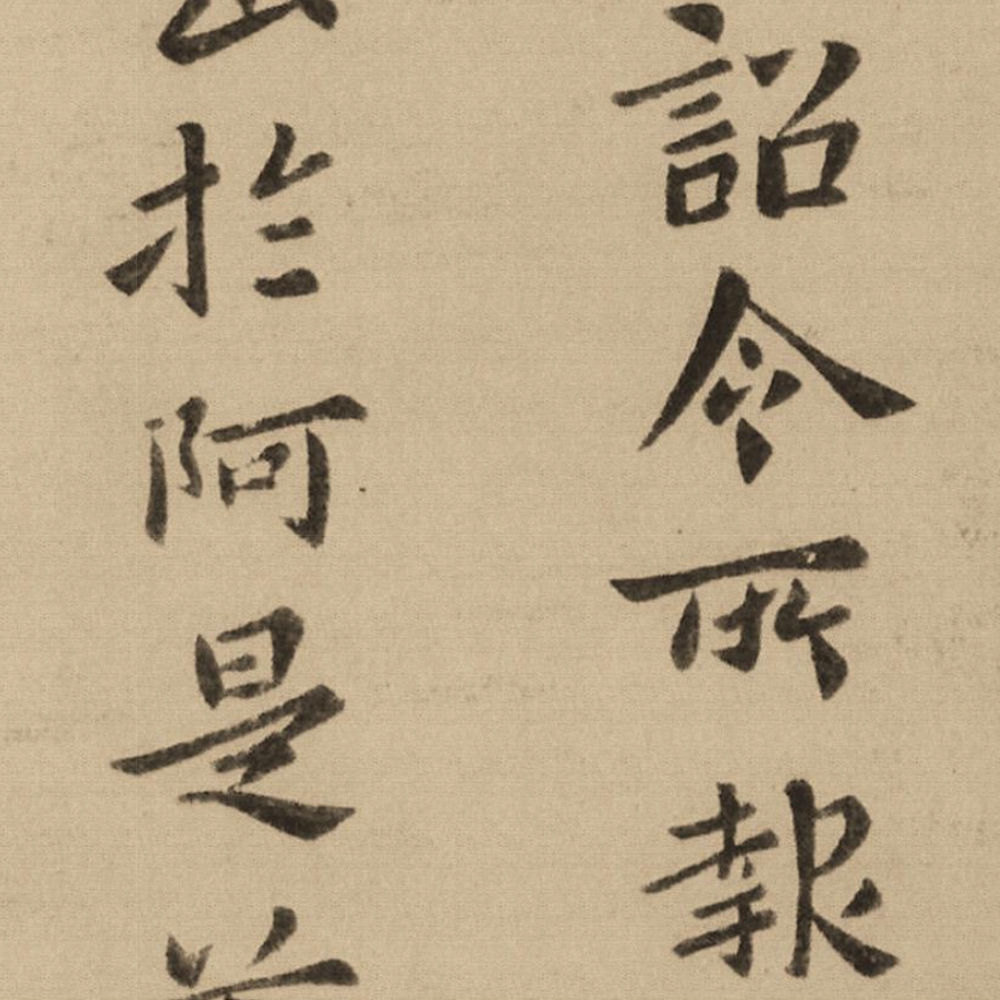 詔令所報
於阿是